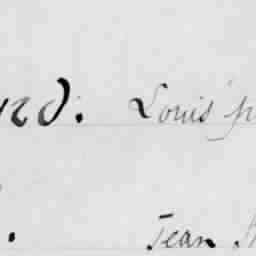 nd. Louis
. Jean